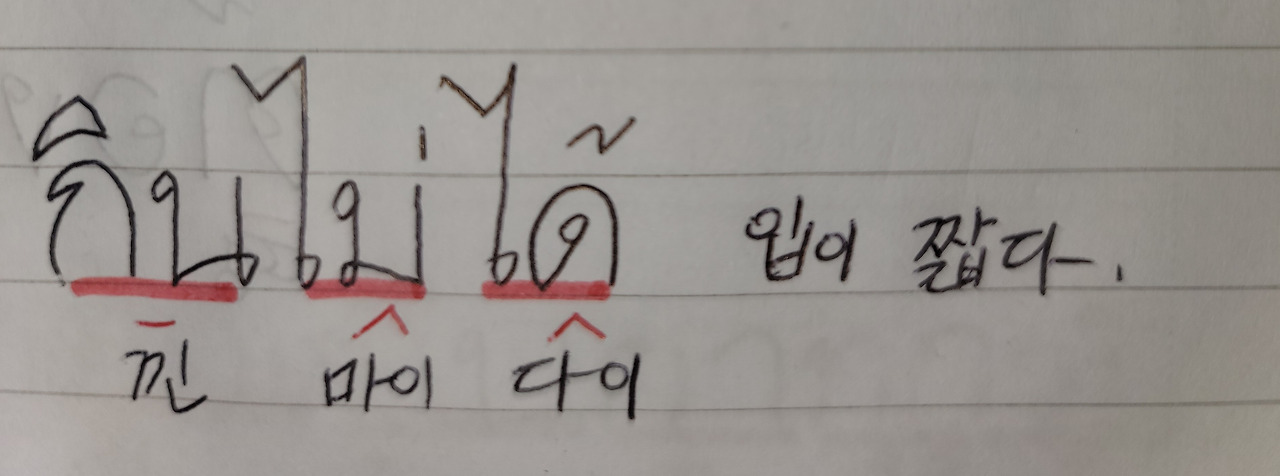 กินไม่ได้ 입이 짧다.
낀 마이 다이